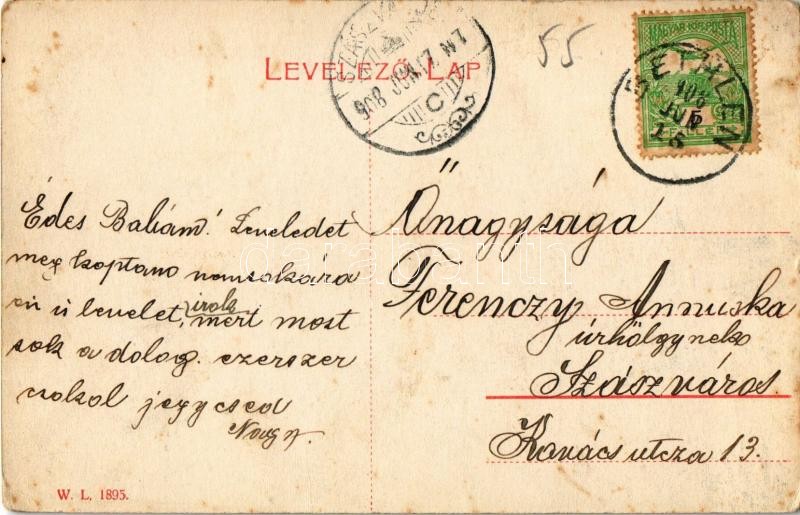 LEVELEZŐ LAP
55
MAGYAR KIR. POSTA
BETHLEN
908 JUN 17
C
Édes Babám! Leveledet
meg koptam nemsokára
én is levelet, irok mert most
sok a dolog. ezerszer
csokol jegycsed
Őnagysága
Ferenczy Annuska
úrhölgynek
Szászváros.
Kovács utcza 13.
W. L. 1895.